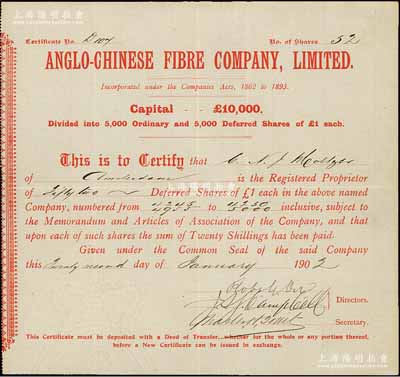 上海陽明拍賣
Certificate No. D 107 No. of Shares 52
ANGLO-CHINESE FIBRE COMPANY, LIMITED.
Incorporated under the Companies Acts, 1862 to 1893.
Capital - - £10,000,
Divided into 5,000 Ordinary and 5,000 Deferred Shares of £1 each.
This is to Certify that
of Amsterdam is the Registered Proprietor
of Fifty two Deferred Shares of £1 each in the above named
Company, numbered from to inclusive, subject to
the Memorandum and Articles of Association of the Company, and that
upon each of such shares the sum of Twenty Shillings has been paid.
Given under the Common Seal of the said Company
this Twenty second day of January 1902
Directors.
Campbell
Secretary.
This Certificate must be deposited with a Deed of Transfer, whether for the whole or any portion thereof,
before a New Certificate can be issued in exchange.
上海陽明拍賣